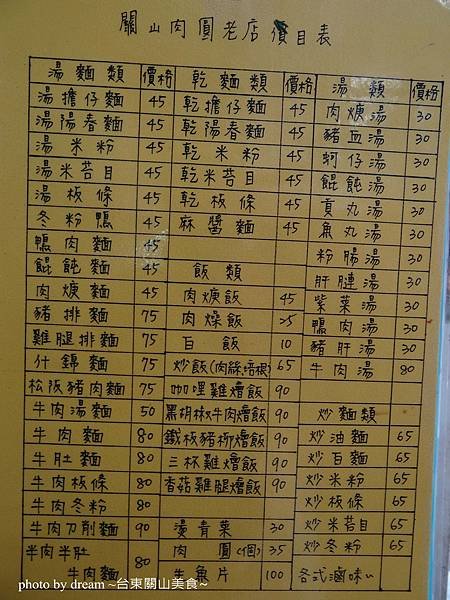 關山肉圓老店價目表
湯麵類 價格 乾麵類 價格 湯類 價格
湯擔仔麵 45 乾擔仔麵 45 肉焿湯 30
湯陽春麵 45 乾陽春麵 45 豬血湯 30
湯米粉 45 乾米粉 45 蚵仔湯 30
湯米苔目 45 乾米苔目 45 餛飩湯 30
湯板條 45 乾板條 45 貢丸湯 30
冬粉鴨 45 麻醬麵 45 魚丸湯 30
鴨肉麵 45 粉腸湯 30
餛飩麵 45 飯類 肝膶湯 30
肉焿麵 45 肉焿飯 45 紫菜湯 30
豬排麵 75 肉燥飯 25 鴨肉湯 30
雞腿排麵 75 白飯 10 豬肝湯 30
什錦麵 75 炒飯(肉絲.培根) 65 牛肉湯 80
松阪豬肉麵 75 咖哩雞燴飯 90
牛肉湯麵 50 黑胡椒牛肉燴飯 90 炒麵類
牛肉麵 80 鐵板豬柳燴飯 90 炒油麵 65
牛肚麵 80 三杯雞燴飯 90 炒白麵 65
牛肉板條 80 香菇雞腿燴飯 90 炒米粉 65
牛肉冬粉 80 炒板條 65
牛肉刀削麵 90 燙青菜 30 炒米苔目 65
半肉半肚 肉圓(個) 35 炒冬粉 65
牛肉麵 80 生魚片 100 各式滷味
photo by dream ~台東關山美食~